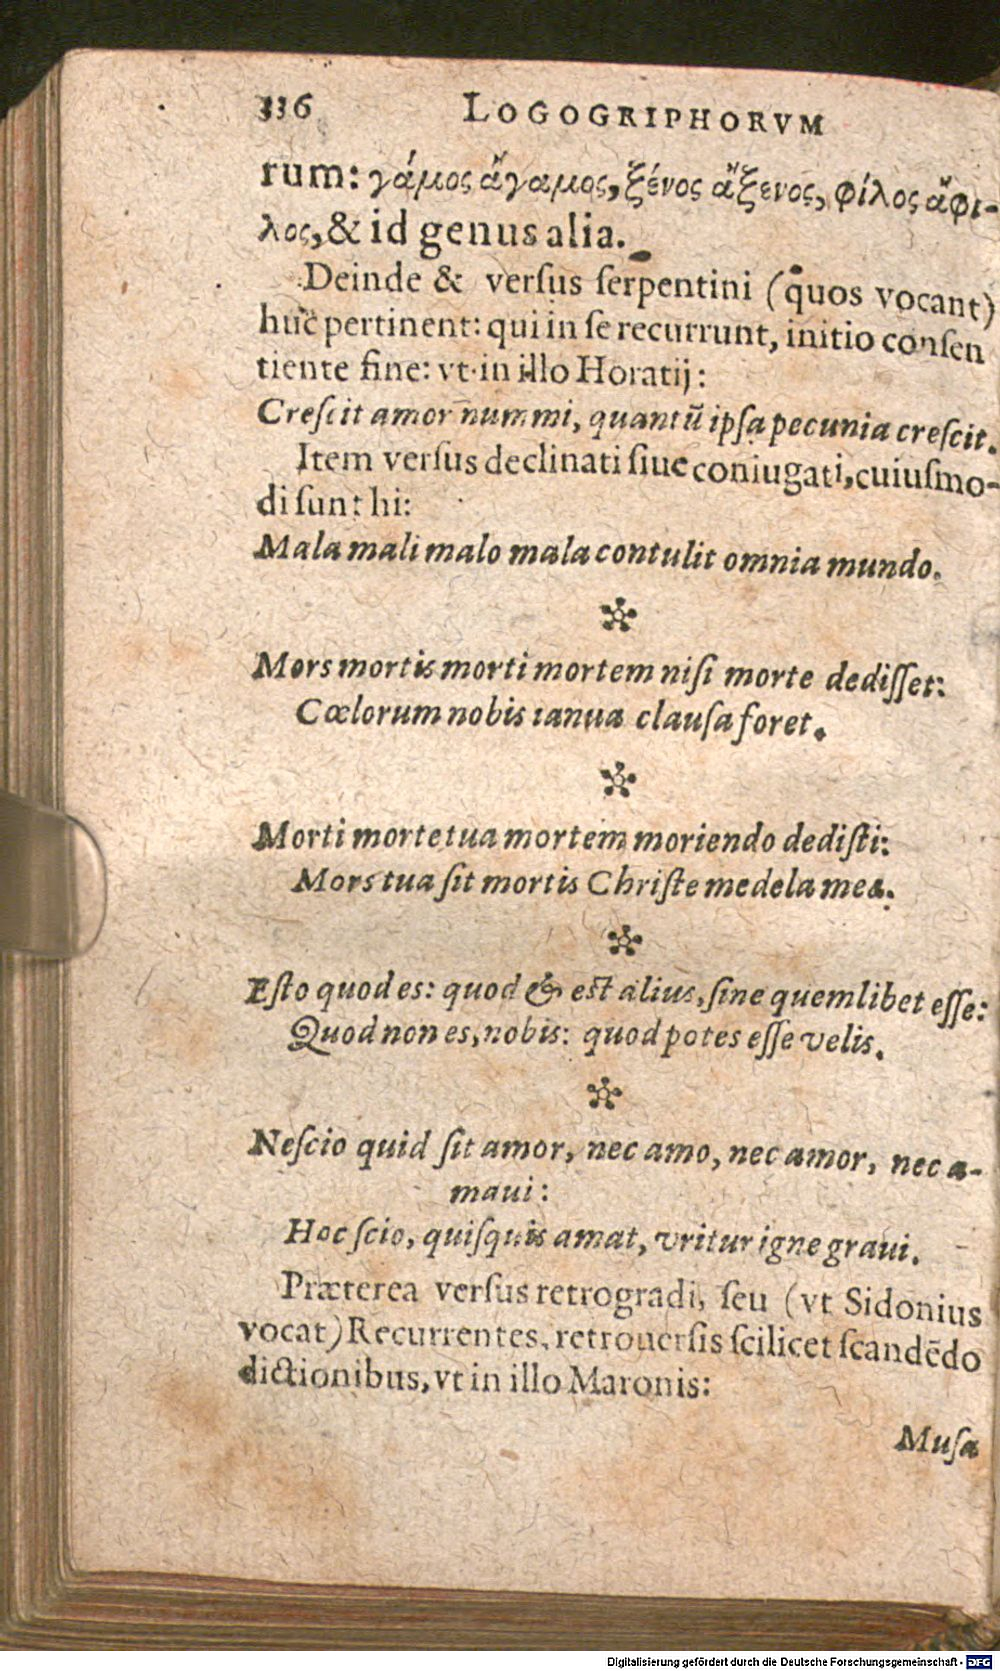 336 LOGOGRIPHORVM
rum: γάμος ἄγαμος, ξένος ἄξενος, φίλος ἄφι-
λος, & id genus alia.
Deinde & verſus ſerpentini (quos vocant)
huc pertinent: qui in ſe recurrunt, initio conſen
tiente fine: vt in illo Horatij:
Creſcit amor nummi, quantū ipſa pecunia creſcit.
Item verſus declinati ſiue coniugati, cuiuſmo-
di sunt hi:
Mala mali malo mala contulit omnia mundo.
Mors mortis morti mortem niſi morte dediſſet:
Cœlorum nobis ianua clauſa foret.
Morti morte tua mortem moriendo dediſti:
Mors tua ſit mortis Chriſte medela mea.
Eſto quod es: quod & est alius, ſine quemlibet eſſe:
Quod non es, nobis: quod potes eſſe velis.
Neſcio quid ſit amor, nec amo, nec amor, nec a-
maui:
Hoc ſcio, quiſquis amat, vritur igne graui.
Præterea verſus retrogradi, ſeu (vt Sidonius
vocat) Recurrentes, retrouerſis ſcilicet ſcandēdo
dictionibus, vt in illo Maronis:
Muſa
Digitalisierung gefördert durch die Deutsche Forschungsgemeinschaft - DFG